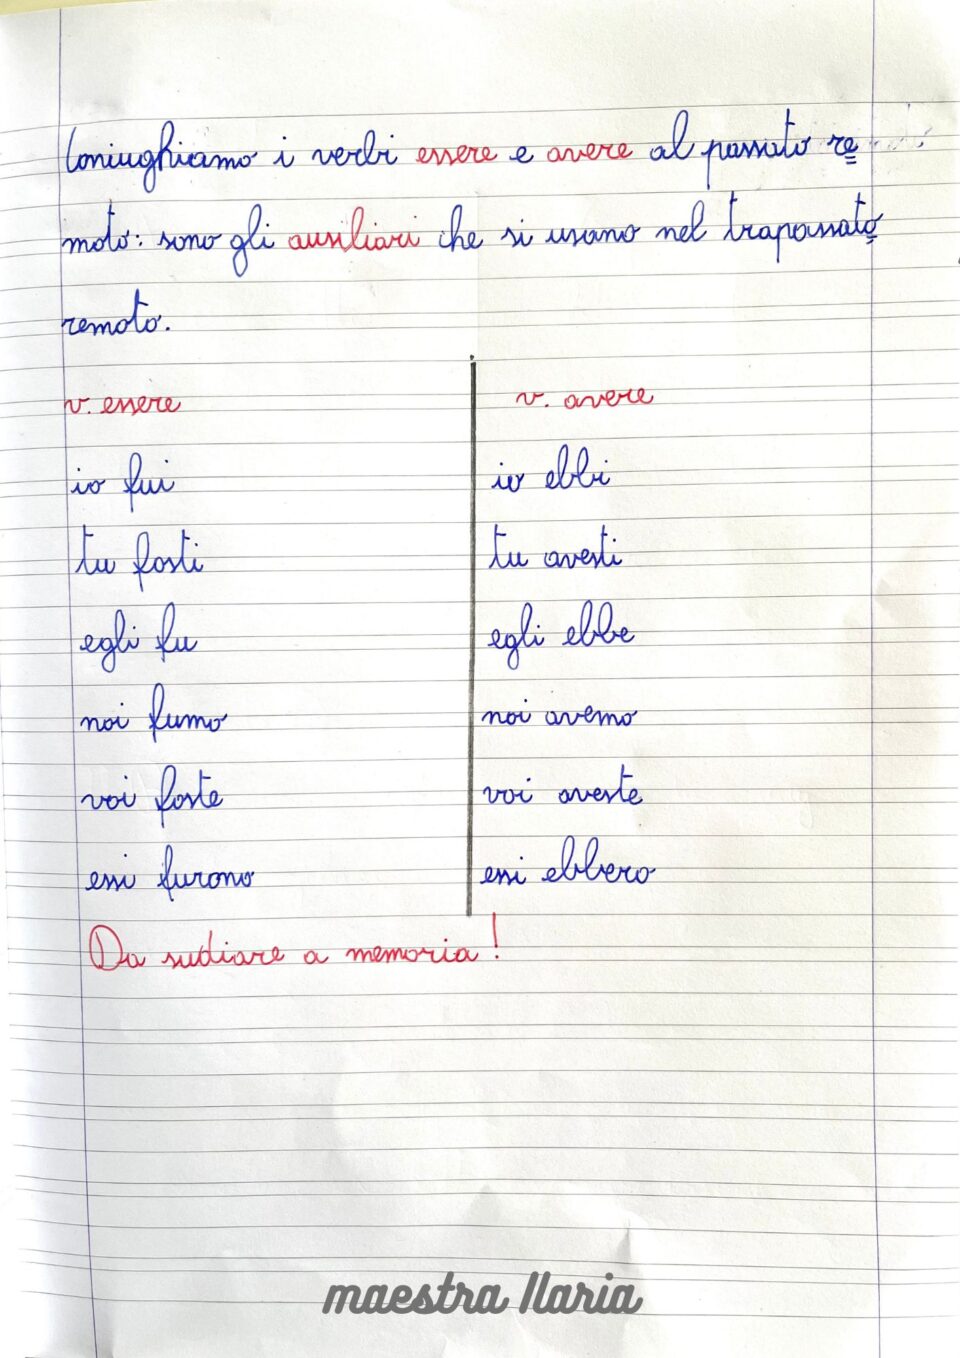 Coniughiamo i verbi essere e avere al passato re
moto: sono gli ausiliari che si usano nel trapassato
remoto.
v. essere
v. avere
io fui
io ebbi
tu fosti
tu avesti
egli fu
egli ebbe
noi fumo
noi avemo
voi foste
voi aveste
essi furono
essi ebbero
Da sudiare a memoria!
maestra Ilaria